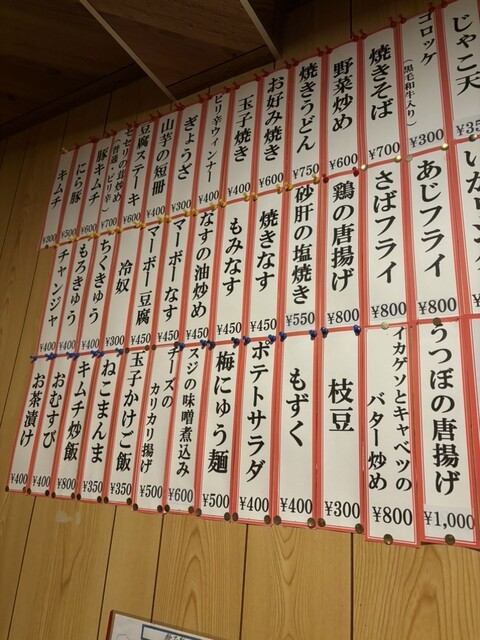 じゃこ天
コロッケ
(黒毛和牛入り)
¥300
焼きそば
¥700
野菜炒め
¥600
焼きうどん
¥750
お好み焼き
¥600
玉子焼き
¥400
ピリ辛ウィンナー
¥400
ぎょうざ
¥300
山芋の短冊
¥400
豆腐ステーキ
¥400
セセリの韮炒め
(普通・ピリ辛)
¥600
豚キムチ
¥700
にら豚
¥600
キムチ
¥300
あじフライ
¥800
さばフライ
¥800
鶏の唐揚げ
¥800
砂肝の塩焼き
¥550
焼きなす
¥450
もみなす
¥450
なすの油炒め
¥450
マーボーなす
¥450
マーボー豆腐
¥450
冷奴
¥300
ちくきゅう
¥400
もろきゅう
¥400
チャンジャ
¥400
うつぼの唐揚げ
¥1,000
イカゲソとキャベツの
バター炒め
¥800
枝豆
¥300
もずく
¥400
ポテトサラダ
¥400
梅にゅう麺
¥500
スジの味噌煮込み
¥600
チーズの
カリカリ揚げ
¥500
玉子かけご飯
¥350
ねこまんま
¥350
キムチ炒飯
¥800
おむすび
¥400
お茶漬け
¥400